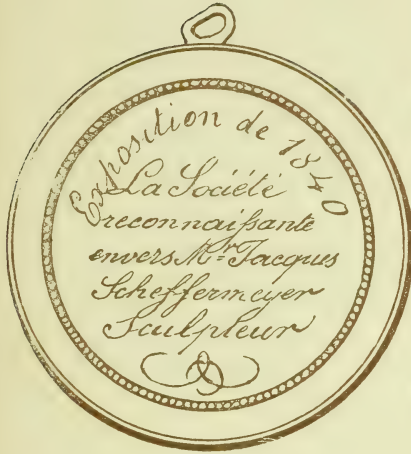 Exposition de 1840
La Société
reconnaiſsante
envers Mr. Jacques
Scheffermeyer
Sculpteur